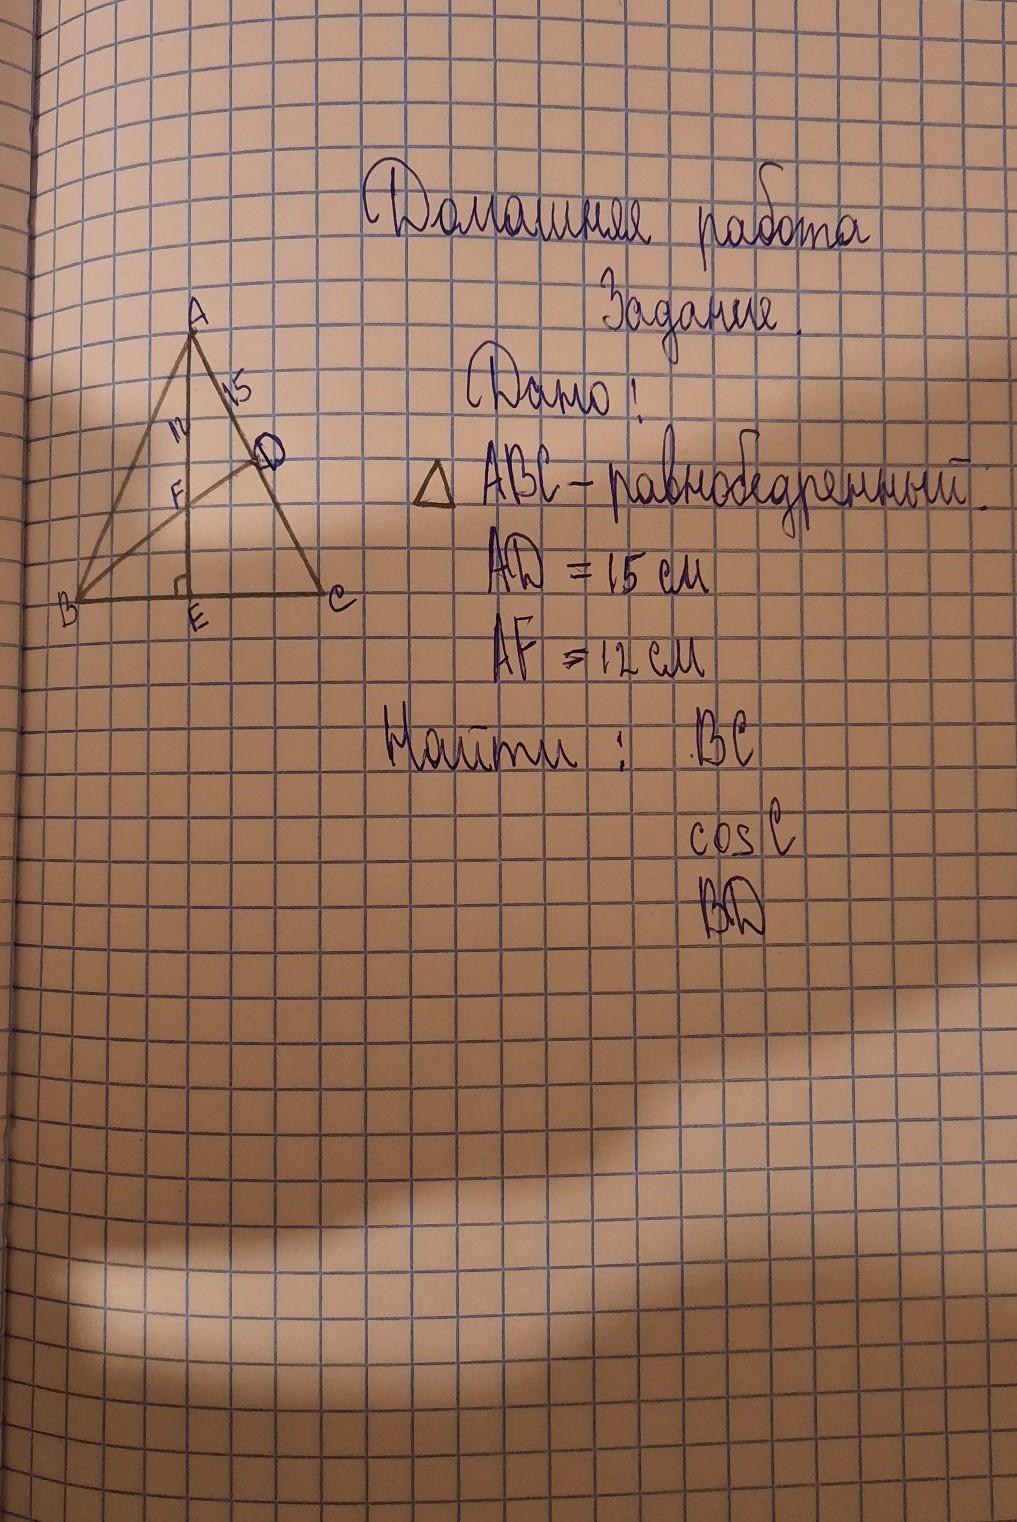 Домашняя работа
Задание.
A
15
Дано:
12
D
F
△ ABC - равнобедренный.
AD = 15 см
B
E
C
AF = 12 см
Найти : BC
cos C
BD